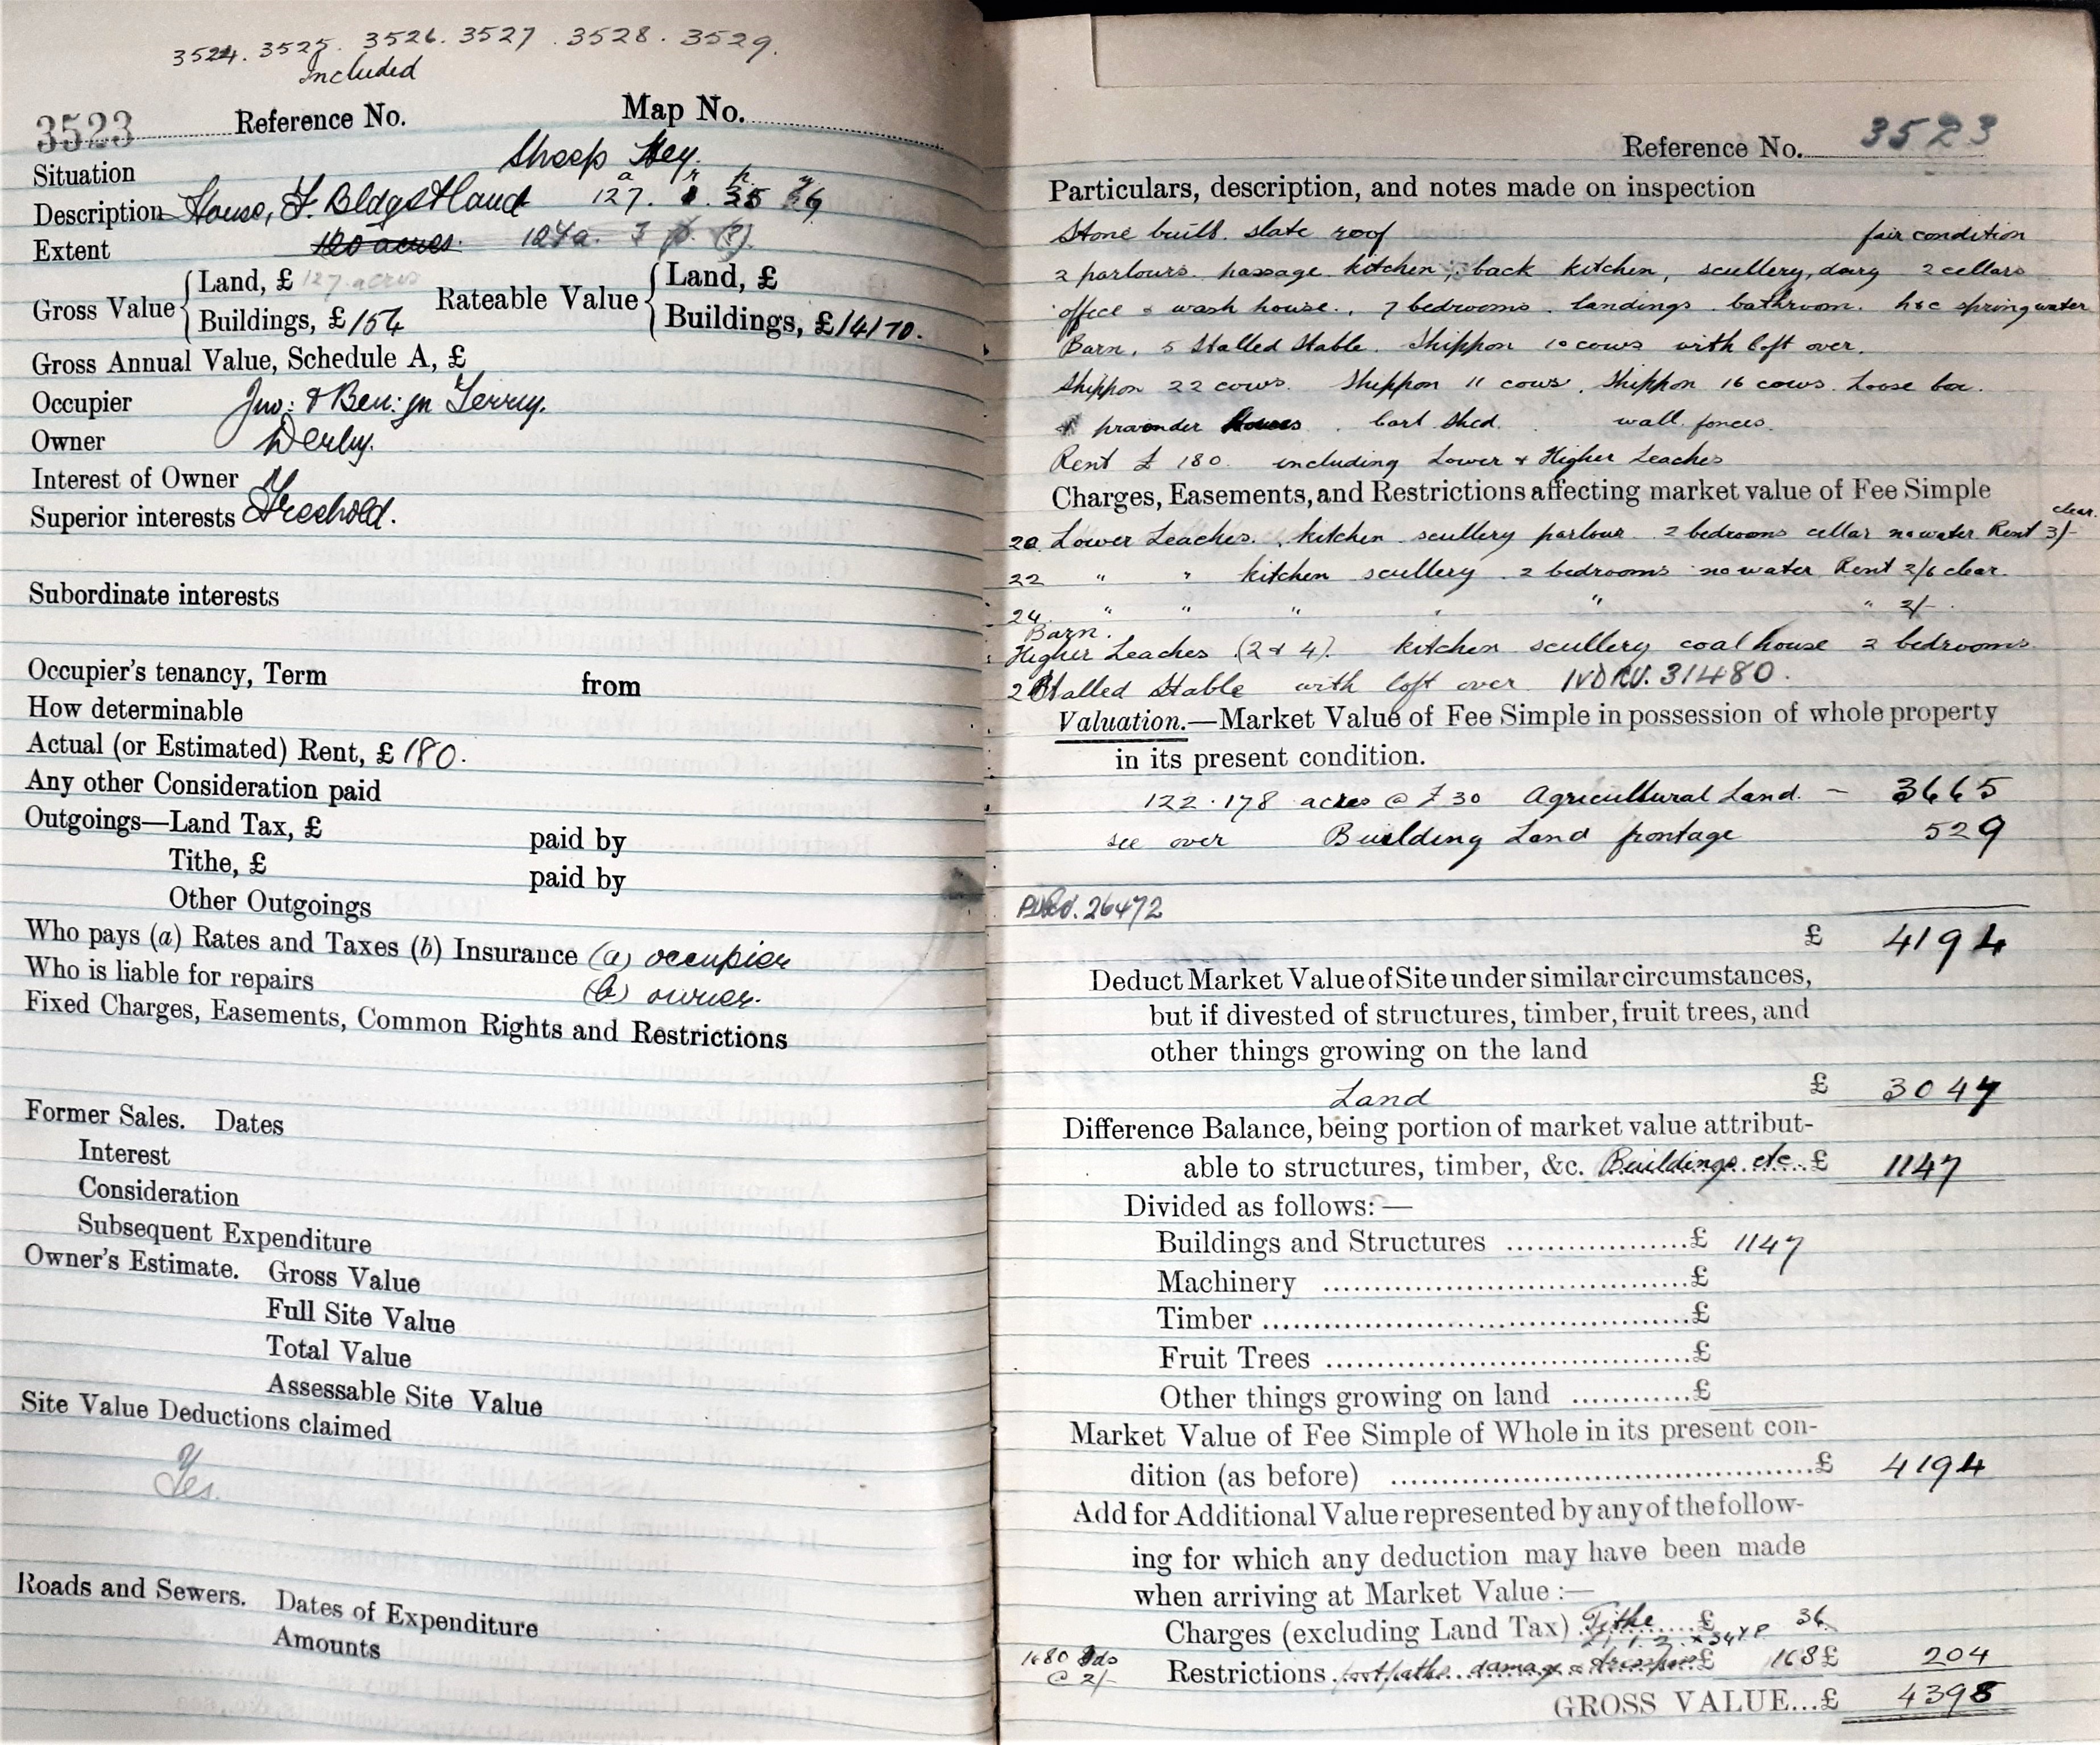 3524. 3525. 3526. 3527. 3528. 3529.
Included
3523 Reference No. Map No.
Situation Sheep Hey.
Description House, F. Bldgs & Land 127. 35
Extent 120 acres.
Gross Value { Land, £ 127 acres Rateable Value { Land, £
Buildings, £154 Buildings, £
Gross Annual Value, Schedule A, £
Occupier Jno: & Ben:jn Terry.
Owner Derby.
Interest of Owner
Superior interests Freehold.
Subordinate interests
Occupier's tenancy, Term from
How determinable
Actual (or Estimated) Rent, £180.
Any other Consideration paid
Outgoings—Land Tax, £ paid by
Tithe, £ paid by
Other Outgoings
Who pays (a) Rates and Taxes (b) Insurance (a) occupier
Who is liable for repairs (b) owner.
Fixed Charges, Easements, Common Rights and Restrictions
Former Sales. Dates
Interest
Consideration
Subsequent Expenditure
Owner's Estimate. Gross Value
Full Site Value
Total Value
Assessable Site Value
Site Value Deductions claimed
Yes.
Roads and Sewers. Dates of Expenditure
Amounts
Reference No. 3523
Particulars, description, and notes made on inspection
Stone built. slate roof fair condition
2 parlours. passage kitchen, back kitchen, scullery, dairy 2 cellars
office & wash house., 7 bedrooms. landings. bathroom. h&c spring water
Barn. 5 Stalled Stable. Shippon 10 cows with loft over.
Shippon 22 cows. Shippon 11 cows. Shippon 16 cows. Loose box.
& provender house. Cart Shed. wall fences.
Rent £ 180. including Lower & Higher Leaches
Charges, Easements, and Restrictions affecting market value of Fee Simple
20 Lower Leaches. kitchen scullery parlour. 2 bedrooms cellar no water Rent 3/- clear.
22 " " kitchen scullery. 2 bedrooms no water Rent 2/6 clear.
24. " " " " " " 2/-.
Barn.
Higher Leaches (2 & 4). kitchen scullery coal house 2 bedrooms.
2 Stalled Stable with loft over 31480.
Valuation.—Market Value of Fee Simple in possession of whole property
in its present condition.
122.178 acres @ £30 Agricultural Land. - 3665
see over Building Land frontage 529
26472
£ 4194
Deduct Market Value of Site under similar circumstances,
but if divested of structures, timber, fruit trees, and
other things growing on the land
Land £ 3047
Difference Balance, being portion of market value attribut-
able to structures, timber, &c. Buildings etc £ 1147
Divided as follows:—
Buildings and Structures £ 1147
Machinery £
Timber £
Fruit Trees £
Other things growing on land £
Market Value of Fee Simple of Whole in its present con-
dition (as before) £ 4194
Add for Additional Value represented by any of the follow-
ing for which any deduction may have been made
when arriving at Market Value :—
Charges (excluding Land Tax) Tithe £ 36
1680 yds @ 2/- Restrictions footpaths damage & trespass £ 168 £ 204
GROSS VALUE...£ 4398